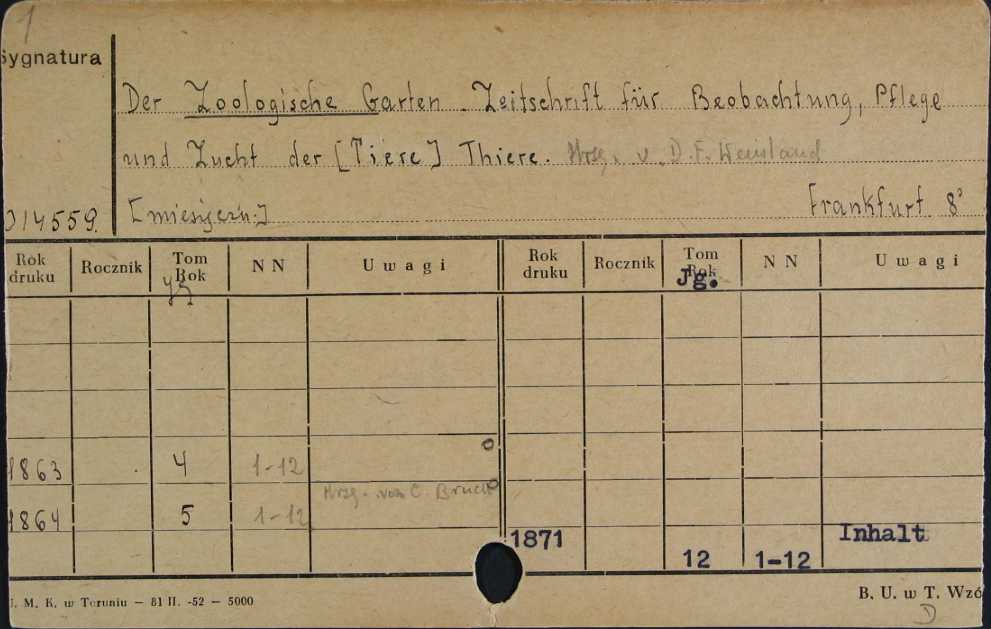 1
Sygnatura
Der Zoologische Garten. Zeitschrift für Beobachtung, Pflege
und Zucht der [Tiere] Thiere. Hrsg. v. D. F. Weinland
014559. [miesięczn.] Frankfurt 8°
Rok druku Rocznik Tom Rok N N Uwagi Rok druku Rocznik Tom Rok N N Uwagi
Jg. Jg.
1863 4 1-12
Hrsg. von C. Bruch
1864 5 1-12
1871 12 1-12 Inhalt
U. M. K. w Toruniu — 81 II. -52 — 5000
B. U. w T. Wzó
D